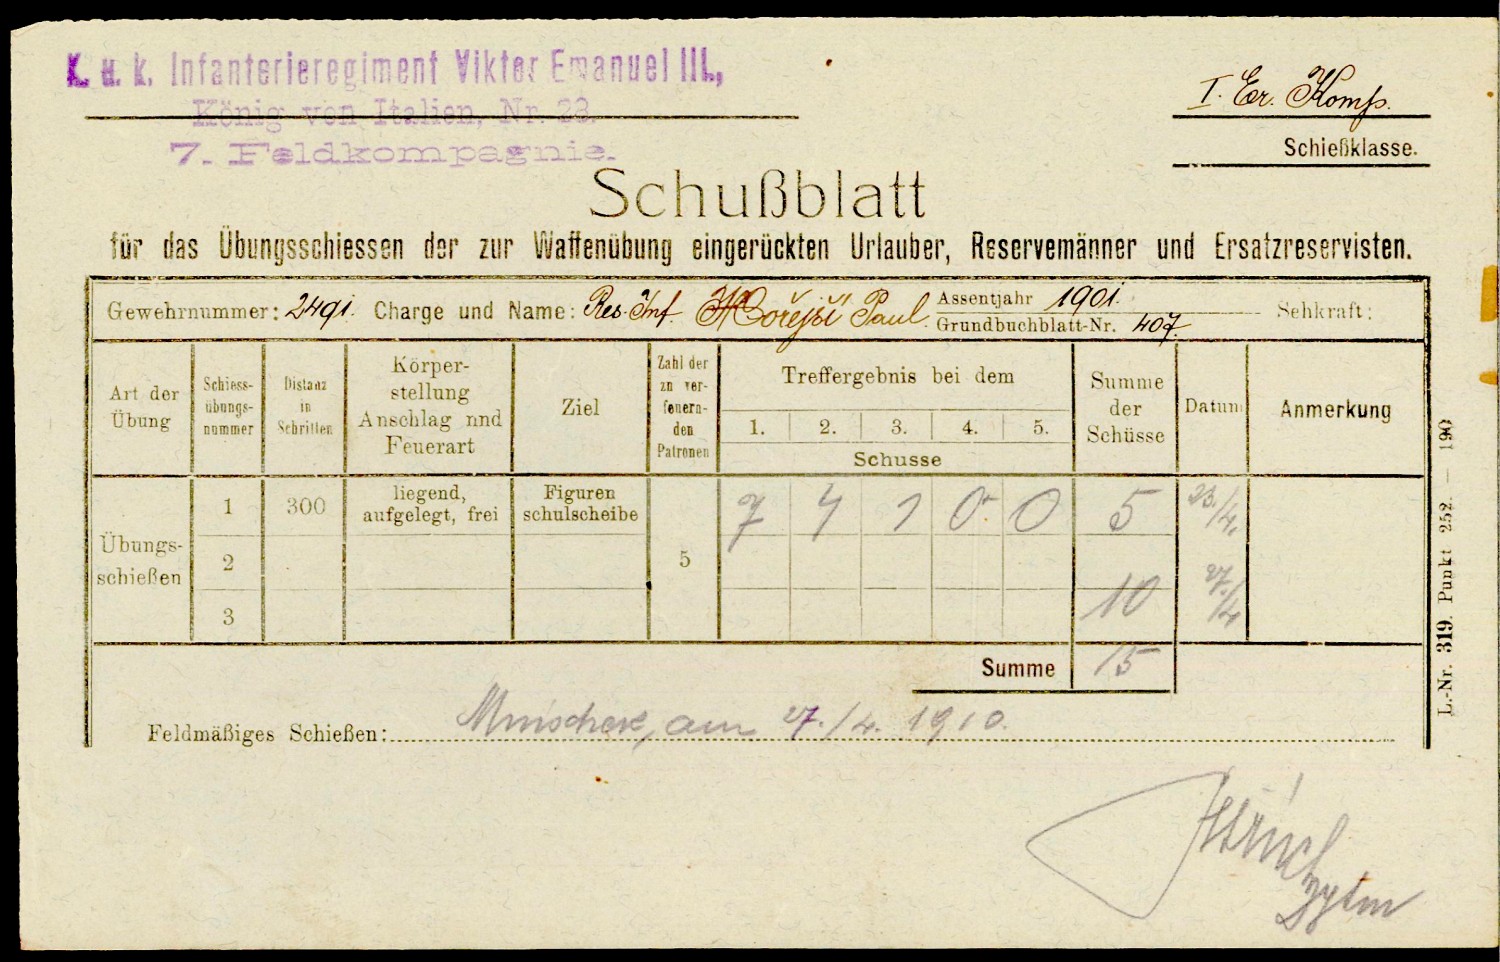 K. u. k. Infanterieregiment Viktor Emanuel III.,
König von Italien, Nr. 28.
7. Feldkompagnie.
I. Er. Komp.
Schießklasse.
Schußblatt
für das Übungsschiessen der zur Waffenübung eingerückten Urlauber, Reservemänner und Ersatzreservisten.
Gewehrnummer: 2491. Charge und Name: Res. Inf. Hořejší Paul. Assentjahr 1901. Sehkraft:
Grundbuchblatt-Nr. 407
Art der Übung
Schiess-übungs-nummer
Distanz in Schritten
Körper-stellung Anschlag nnd Feuerart
Ziel
Zahl der zn ver-feuern-den Patronen
Treffergebnis bei dem
1. 2. 3. 4. 5.
Schusse
Summe der Schüsse
Datum
Anmerkung
Übungs-schießen
1 300 liegend, aufgelegt, frei Figuren schulscheibe 5 7 4 1 0 0 5 23./4.
2
3 10 27./4
Summe 15
Feldmäßiges Schießen: am 27./4. 1910.
L.-Nr. 319. Punkt 252. — 190